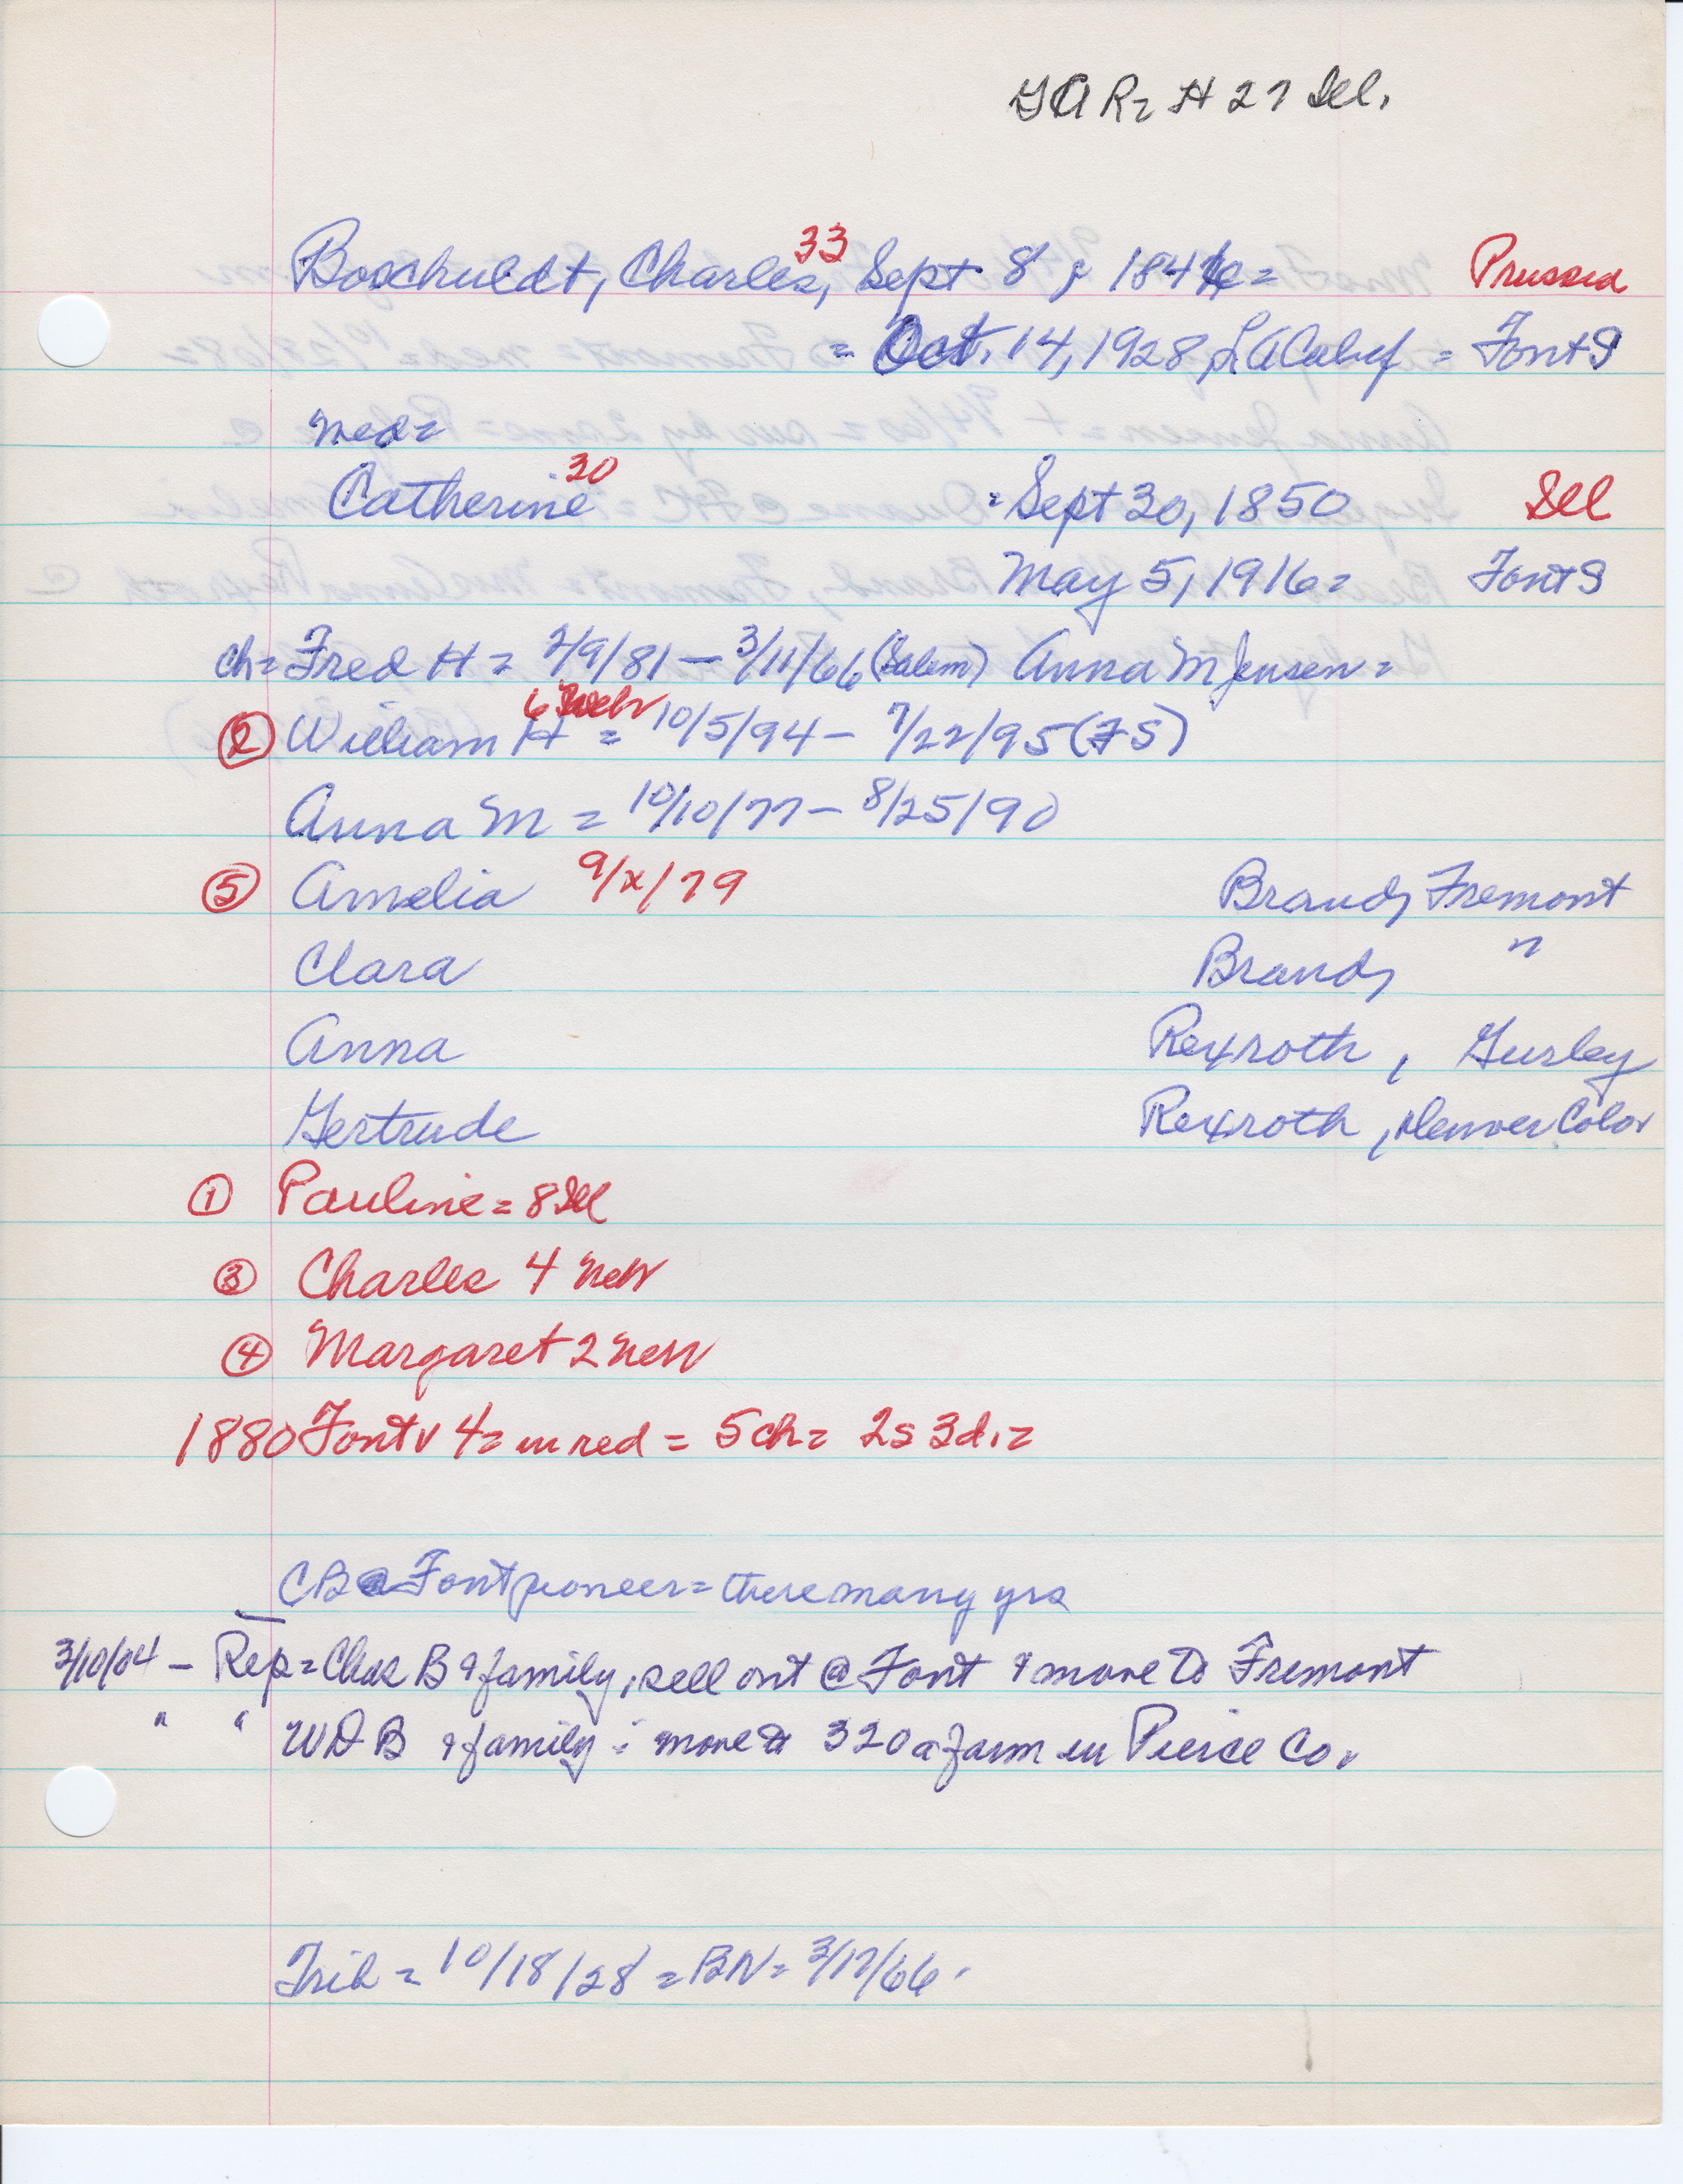 GAR = H 27 Ill.
Boschuldt, Charles, 33 Sept 8, 1846 = Prussia
= Oct. 14, 1928, LA Calif = Font S
med =
Catherine 30 = Sept 30, 1850 Ill
May 5, 1916 = Font S
ch = Fred H = 2/9/81 - 3/11/66 (Salem) Anna M Jensen =
② William H 6 Nebr = 10/5/94 - 7/22/95 (FS)
Anna M = 10/10/77 - 8/25/90
⑤ Amelia 9/x/79 Brand, Fremont
Clara Brand, "
Anna Rexroth, Gurley
Gertrude Rexroth, Denver Color
① Pauline = 8 Ill
③ Charles 4 Nebr
④ Margaret 2 Nebr
1880 Font v 4 = in red = 5 ch = 2s 3d. =
CB @ Font pioneer = there many yrs
3/10/04 - Rep = Chas B & family, sell out @ Font & move to Fremont
" " WDB & family : move to 320 a farm in Pierce Co.
Trib = 10/18/28 = BN = 3/17/66.